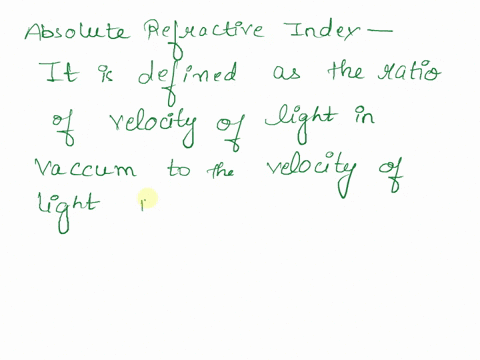 Absolute Refractive Index —
It is defined as the ratio
of velocity of light in
vaccum to the velocity of
light